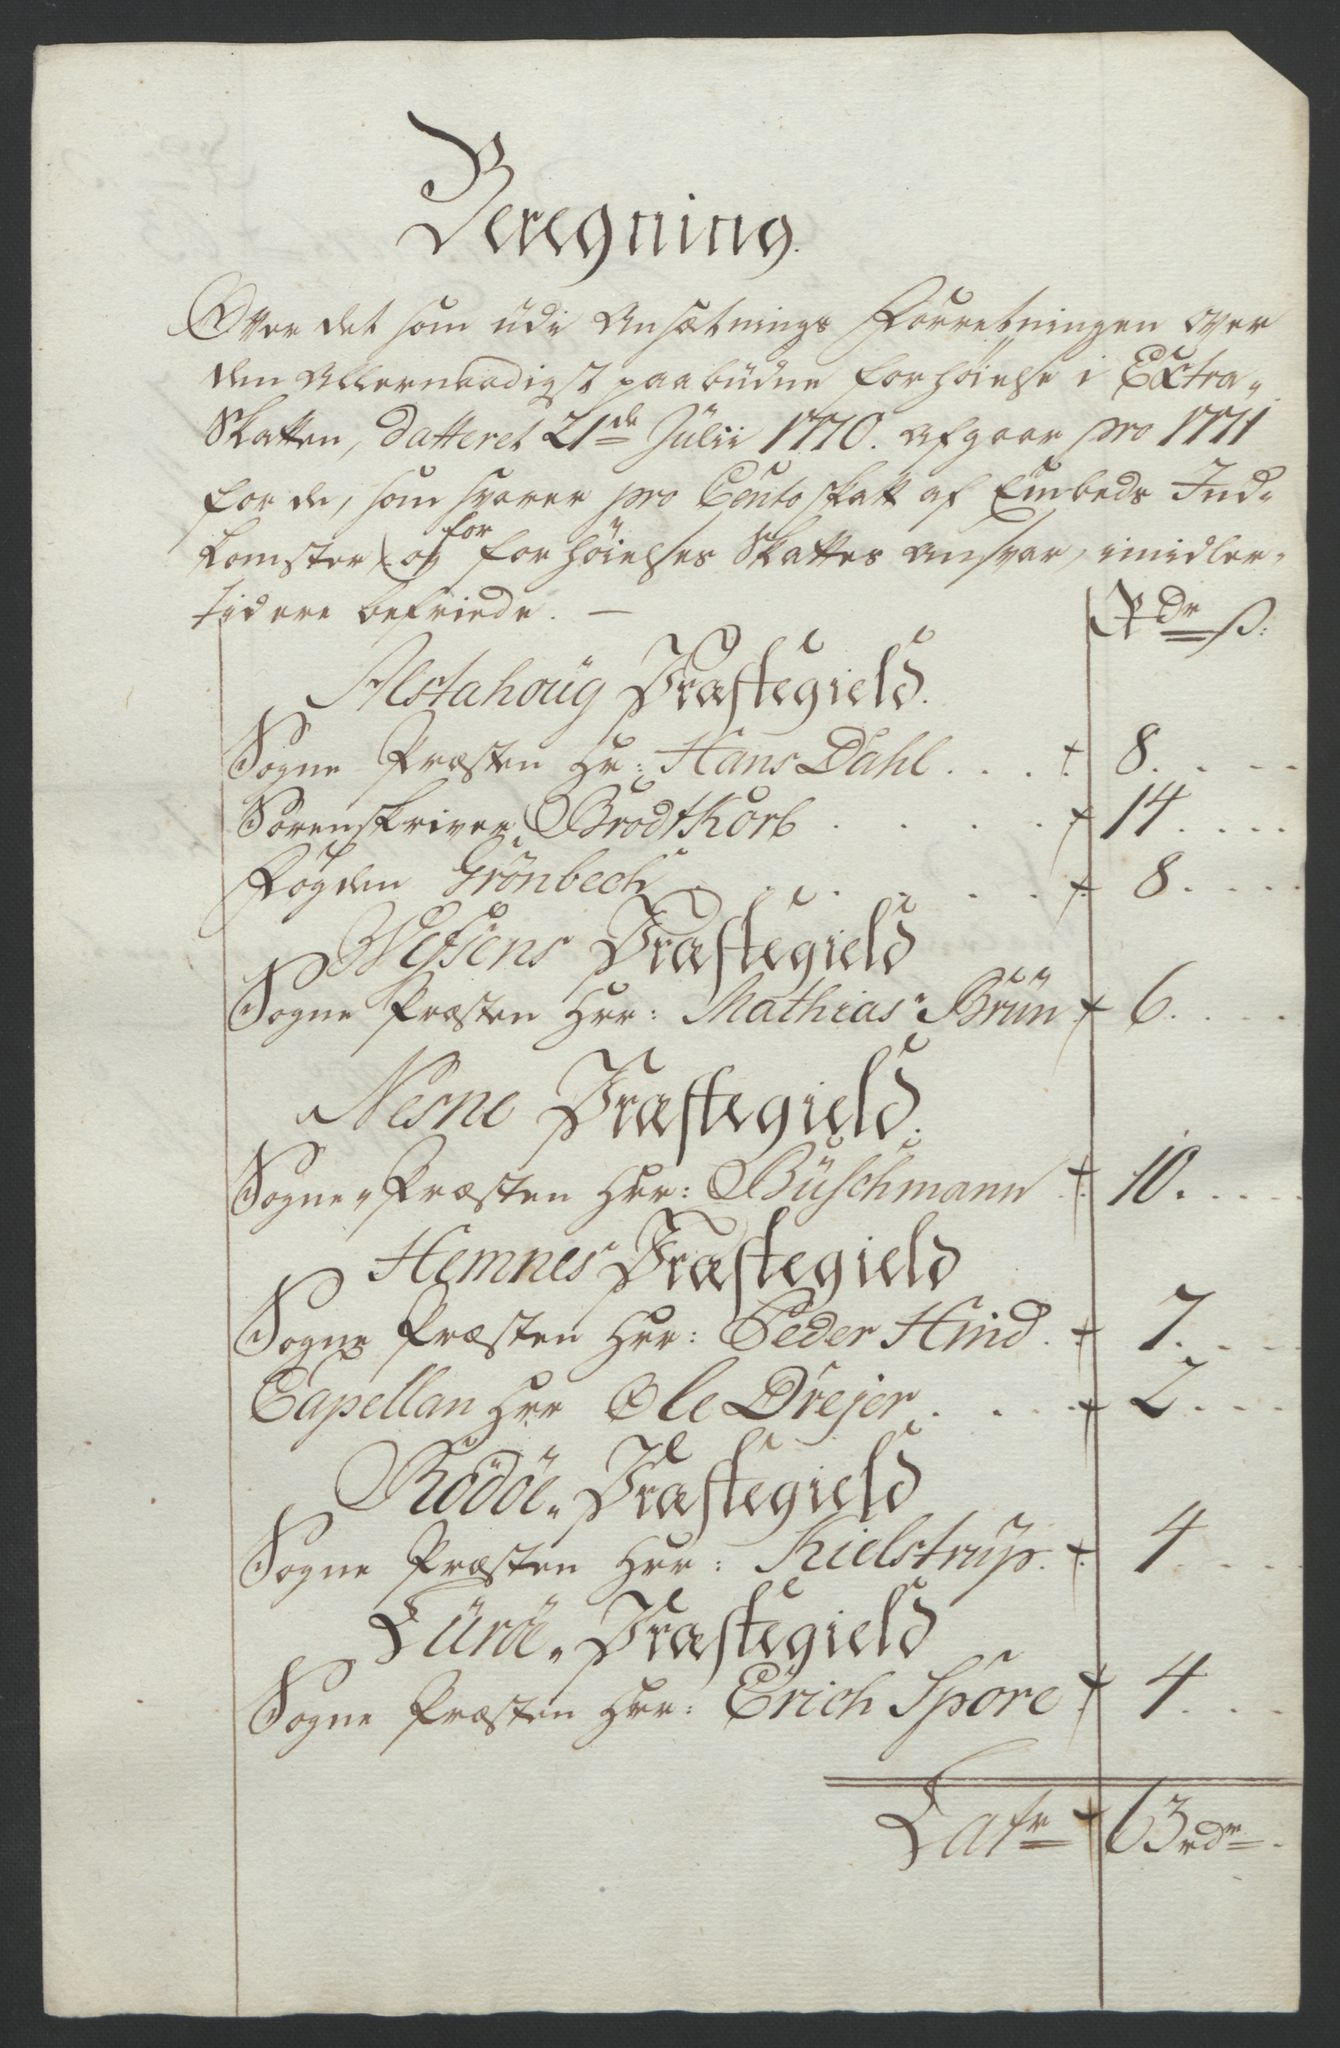 Beregning.
Over det som udi Ansætnings Forretningen over
den Allernaadigst paabudne forhøielse i Extra„
Skatten, datteret 21de Julii 1770. afgaar pro 1771
for de, som svarer pro Cento skatt af Embeds Ind„
komster, og for forhøielses Skattes Ansvar, imidler„
tid ere befriede. —
Rdr ß:
Alstahoug Præstegield.
Sogne Præsten Hr: Hans Dahl . . . . 8. . . .
Sorenskriver Brodtkorb . . . . 14. . . .
Fogden Grönbech . . . . . . 8. . . .
Wefsens Præstegield
Sogne Præsten Hrr: Mathias Brün 6. . . .
Nesne Præstegield.
Sogne„Præsten Hrr: Büschmann . 10. . . .
Hemnes Præstegield
Sogne Præsten Hrr: Peder Hind . 7. . . .
Capellan Hrr Ole Drejer . . . . 2. . . .
Rödöe„ Præstegield
Sogne Præsten Hrr: Kielstrup . 4. . . .
Luröe„ Præstegield
Sogne Præsten Hrr: Erich Spore 4. . . .
Latr 63 rdr